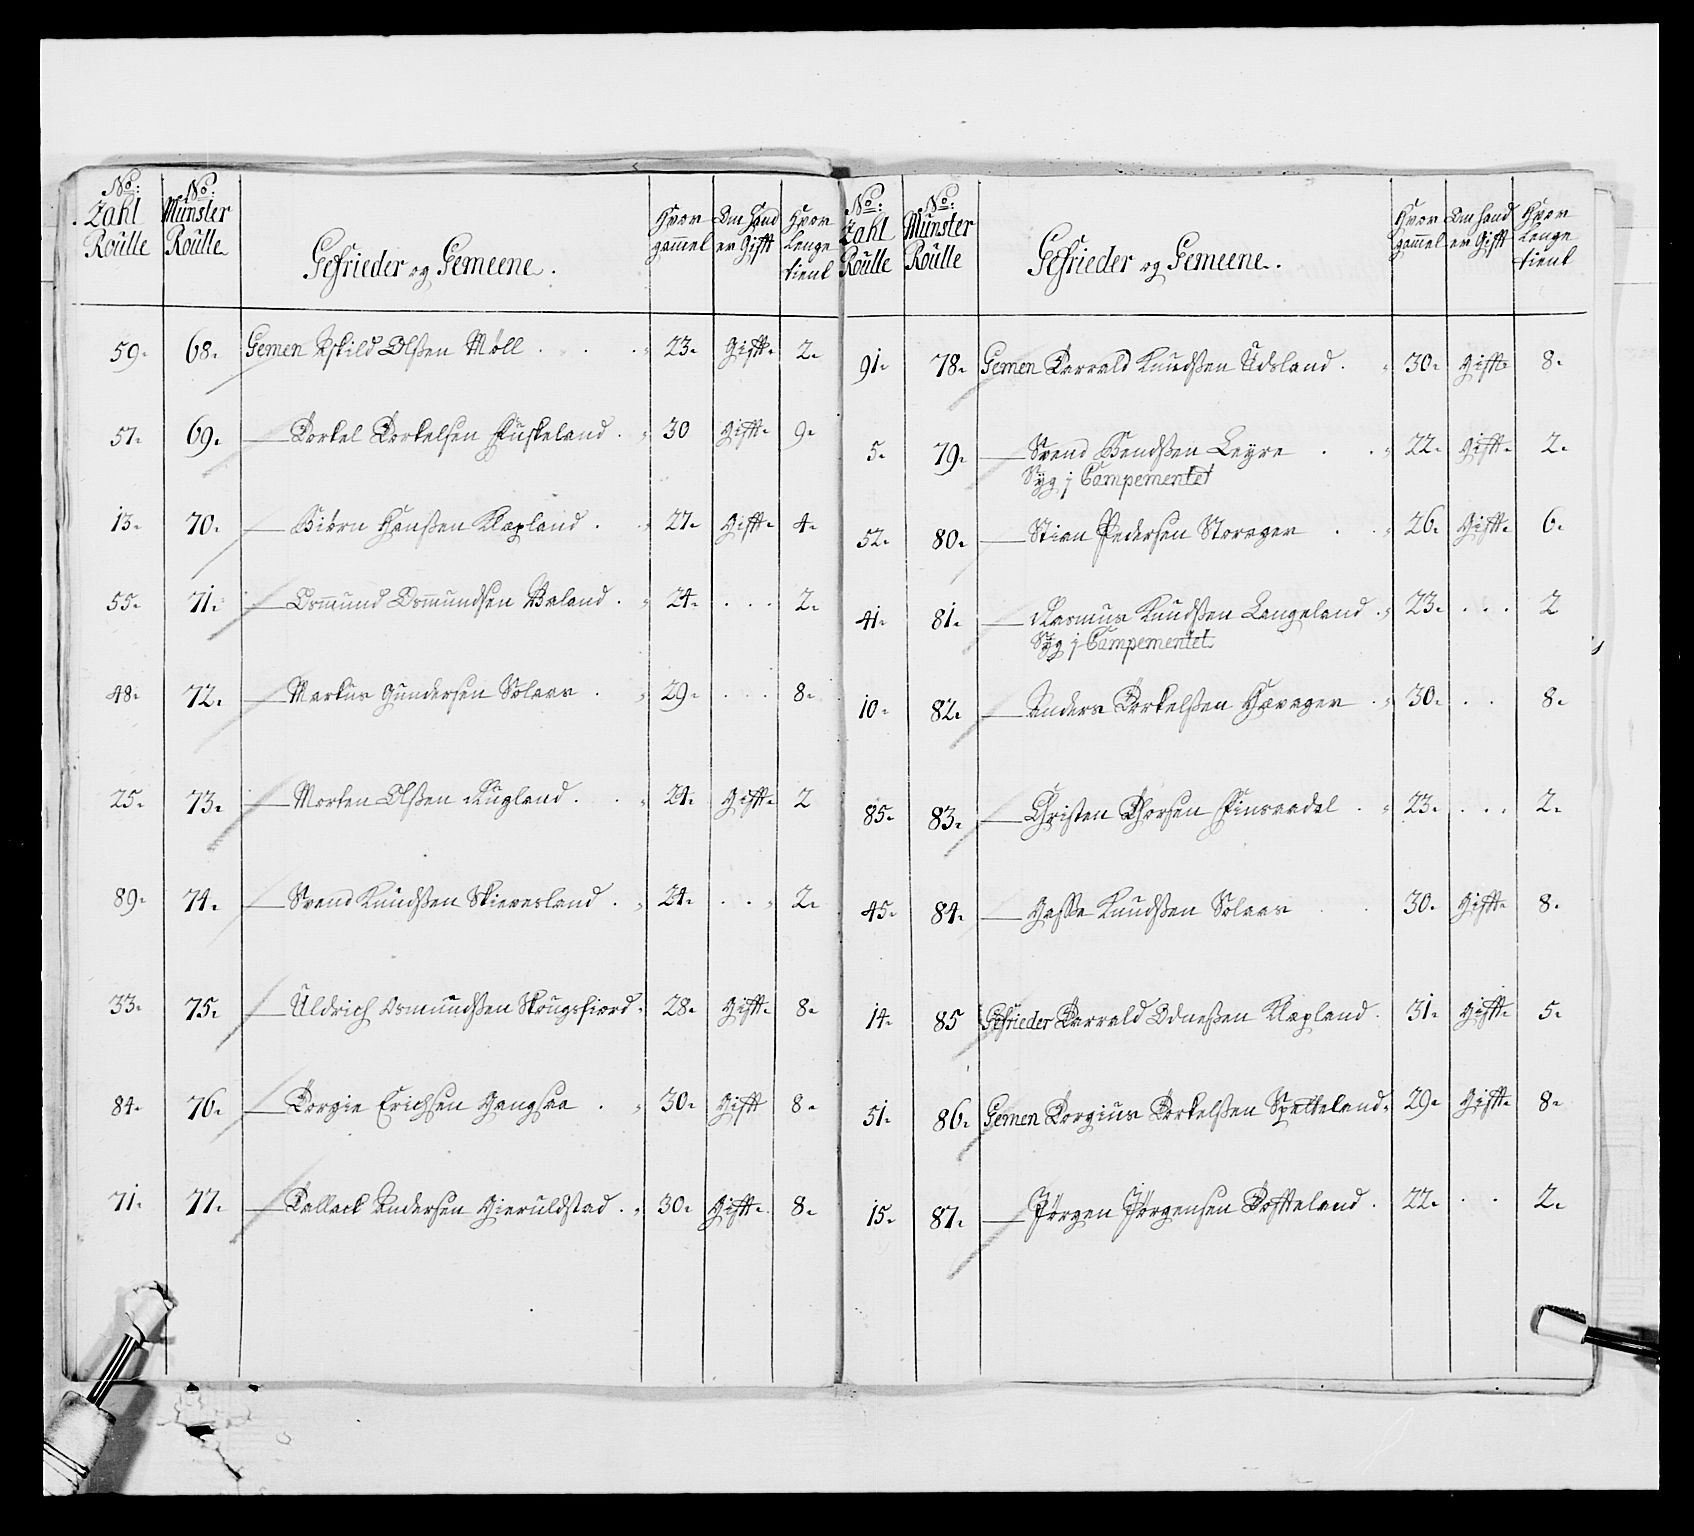 No: Zahl Roulle | No: Münster Roulle | Gefrieder og Gemeene. | Hvor gammel | Om hand er Gifft | Hvor Lenge tient
59. 68. Gemen Eskild Olsen Möll . . . 23. Gifft. 2.
57. 69. — Torkel Torkelsen Fuskeland . 30 Gifft. 9.
13. 70. — Biörn Hansen Klepland . . 27. Gifft. 4.
55. 71. — Osmund Osmundsen Valand . 24. . . . 2.
48. 72. — Markus Gundersen Solaas . . 29. . . . 8.
25. 73. — Morten Olsen Rugland . . 24. Gifft. 2
89. 74. — Svend Knudsen Skieresland . 24. . . . 2.
33. 75. — Uldrich Osmundsen Skougsfiord. 28. Gifft. 8.
84. 76. — Torgie Erichsen Hangsaa . . 30. Gifft 8.
71. 77. — Tallack Andersen Gieruldstad . 30. Gifft. 8.
No: Zahl Roulle | No: Münster Roulle | Gefrieder og Gemeene. | Hvor gammel | Om hand er Gifft | Hvor Lenge tient
91. 78. Gemen Tarrald Knudsen Udsland . 30. Gifft. 8.
5. 79. — Svend Bendsen Leyre . . 22. Gifft. 2.
Syg j Campementet
52. 80. — Stian Pedersen Storager . . 26. Gifft. 6.
41. 81. — Rasmus Knudsen Langeland . 23. . . . 2
Syg j Campementet
10. 82. — Anders Torkelsen Haaager . 30. . . 8.
85. 83. — Christen Thorsen Finsaadal . 23. . . . 2.
45. 84. — Gasse Knudsen Solaas . . 30. Gifft. 8.
14. 85 Gefrieder Tarrald Odnesen Klepland . 31. Gifft. 5.
51. 86. Gemen Torgius Torkelsen Spetteland. 29. Gifft. 8.
15. 87. — Jörgen Jörgensen Toffteland . 22. . . 2.